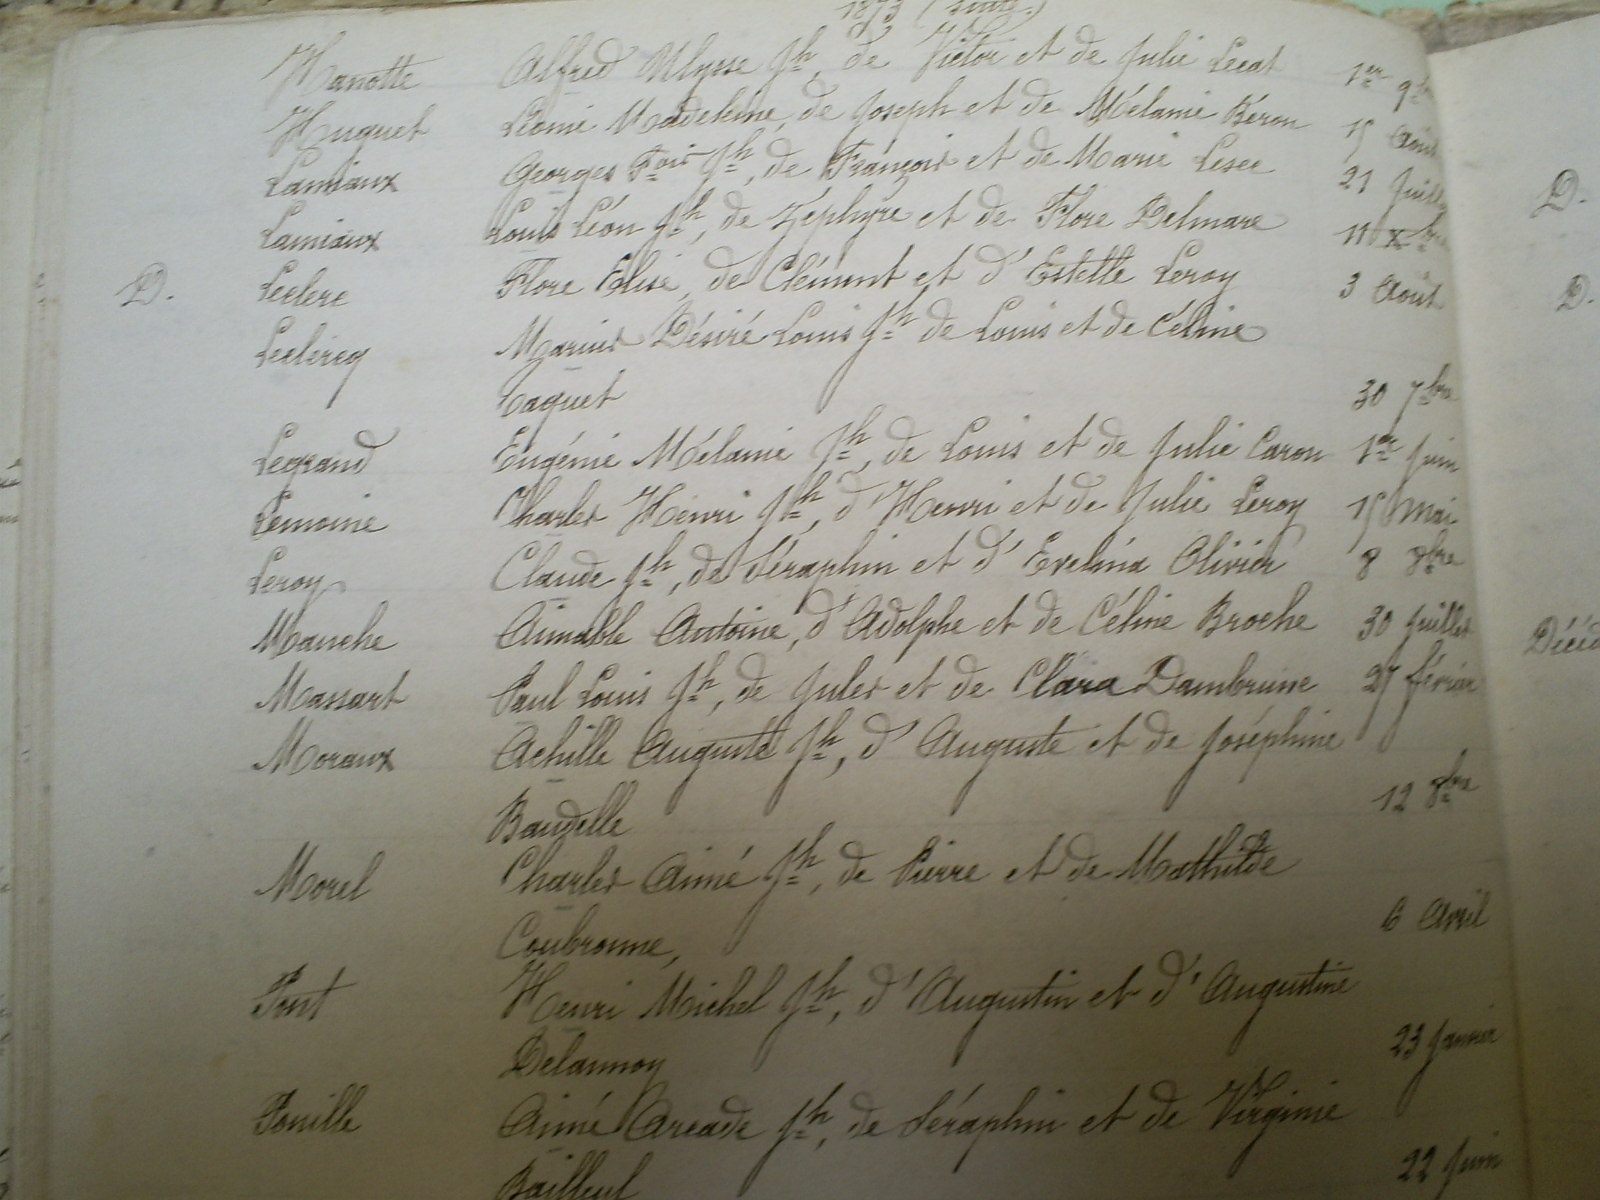 1873 (suite.)
Hanotte Alfred Ulysse Jh, de Victor et de Julie Lecat 1er 9b
Huguet Léonie Madeleine, de Joseph et de Mélanie Béron 15 Août
Lamiaux Georges Fois Jh, de François et de Marie Lesec 21 Juill
Lamiaux Louis Léon Jh, de Zéphyre et de Flore Delmare 11 Xbre
D. Leclerc Flore Elise, de Clément et d'Estelle Leroy 3 Août
Leclercq Marius Désiré Louis Jh de Louis et de Céline
Caquet 30 7bre
Legrand Eugénie Mélanie Jh, de Louis et de Julie Caron 1er Juin
Lemoine Charles Henri Jh, d'Henri et de Julie Leroy 15 Mai
Leroy Claude Jh, de Séraphin et d'Evelina Olivier 8 8bre
Manche Aimable Antoine, d'Adolphe et de Céline Broche 30 Juillet
Massart Paul Louis Jh, de Jules et de Clara Dambrine 27 février
Moraux Achille Auguste Jh, d'Auguste et de Joséphine
Baudelle 12 8bre
Morel Charles Aimé Jh, de Pierre et de Mathilde
Coubronne, 6 Avril
Pont Henri Michel Jh, d'Augustin et d'Augustine
Delannoy 23 Janvier
Pouille Aimé Arcade Jh, de Séraphin et de Virginie
Bailleul 22 Juin
D.
D.
Décéd